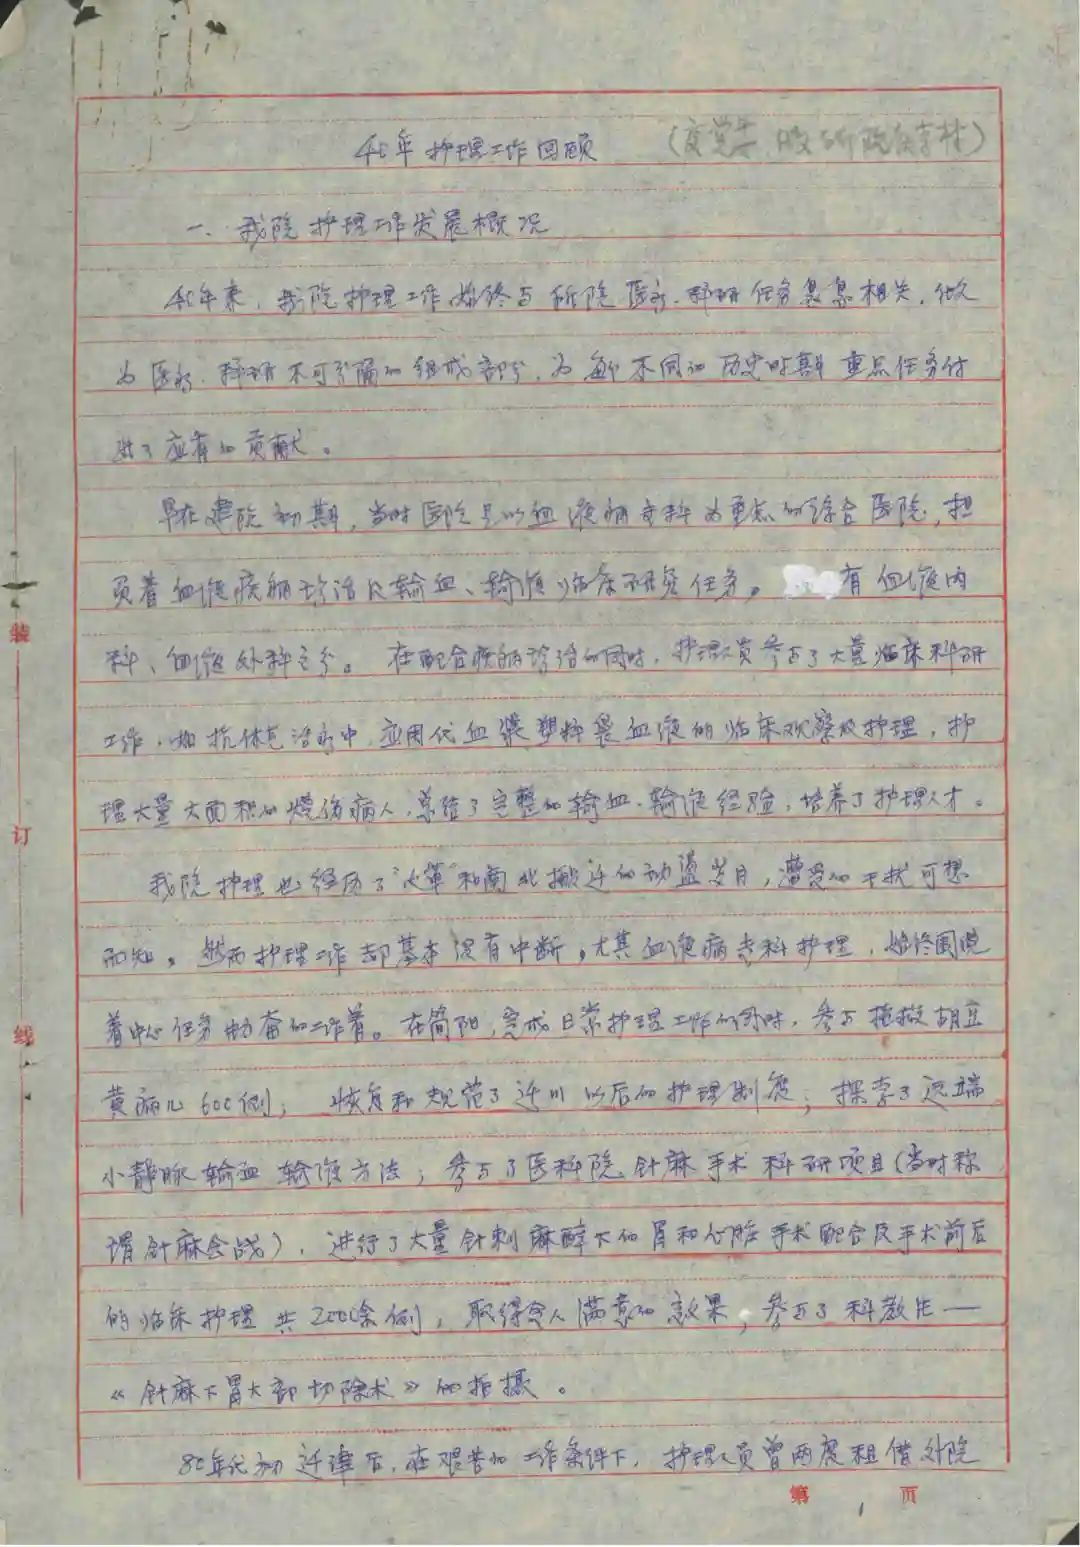 40年护理工作回顾
一、我院护理工作发展概况
40年来,我院护理工作始终与所院医疗、科研任务息息相关,做
为医疗、科研不可分割的组成部分,为每个不同的历史时期重点任务付
出了应有的贡献。
早在建院初期,当时医院是以血液病专科为重点的综合医院,担
负着血液疾病诊治及输血、输液临床研究任务。有血液内
科、血液外科之分。在配合疾病诊治的同时,护理人员参与了大量临床科研
工作,如抗休克治疗中,应用代血浆塑料袋血液的临床观察及护理,护
理大量大面积的烧伤病人,总结了完整的输血、输液经验,培养了护理人才。
我院护理也经历了“文革”和南北搬迁的动盪岁月,遭受的干扰可想
而知。然而护理工作却基本没有中断,尤其血液病专科护理,始终围绕
着中心任务勤奋的工作着。在简阳,完成日常护理工作的同时,参与抢救胡豆
黄病儿600例;恢复和规范了迁川以后的护理制度;探索了远端
小静脉输血输液方法;参与了医科院针麻手术科研项目(当时称
谓针麻会战),进行了大量针刺麻醉下的胃和心脏手术配合及手术前后
的临床护理共2000余例,取得令人满意的效果,参与了科教片——
《针麻下胃大部切除术》的拍摄。
80年代初迁津后,在艰苦的工作条件下,护理人员曾两度租借外院
装
订
线
第1页